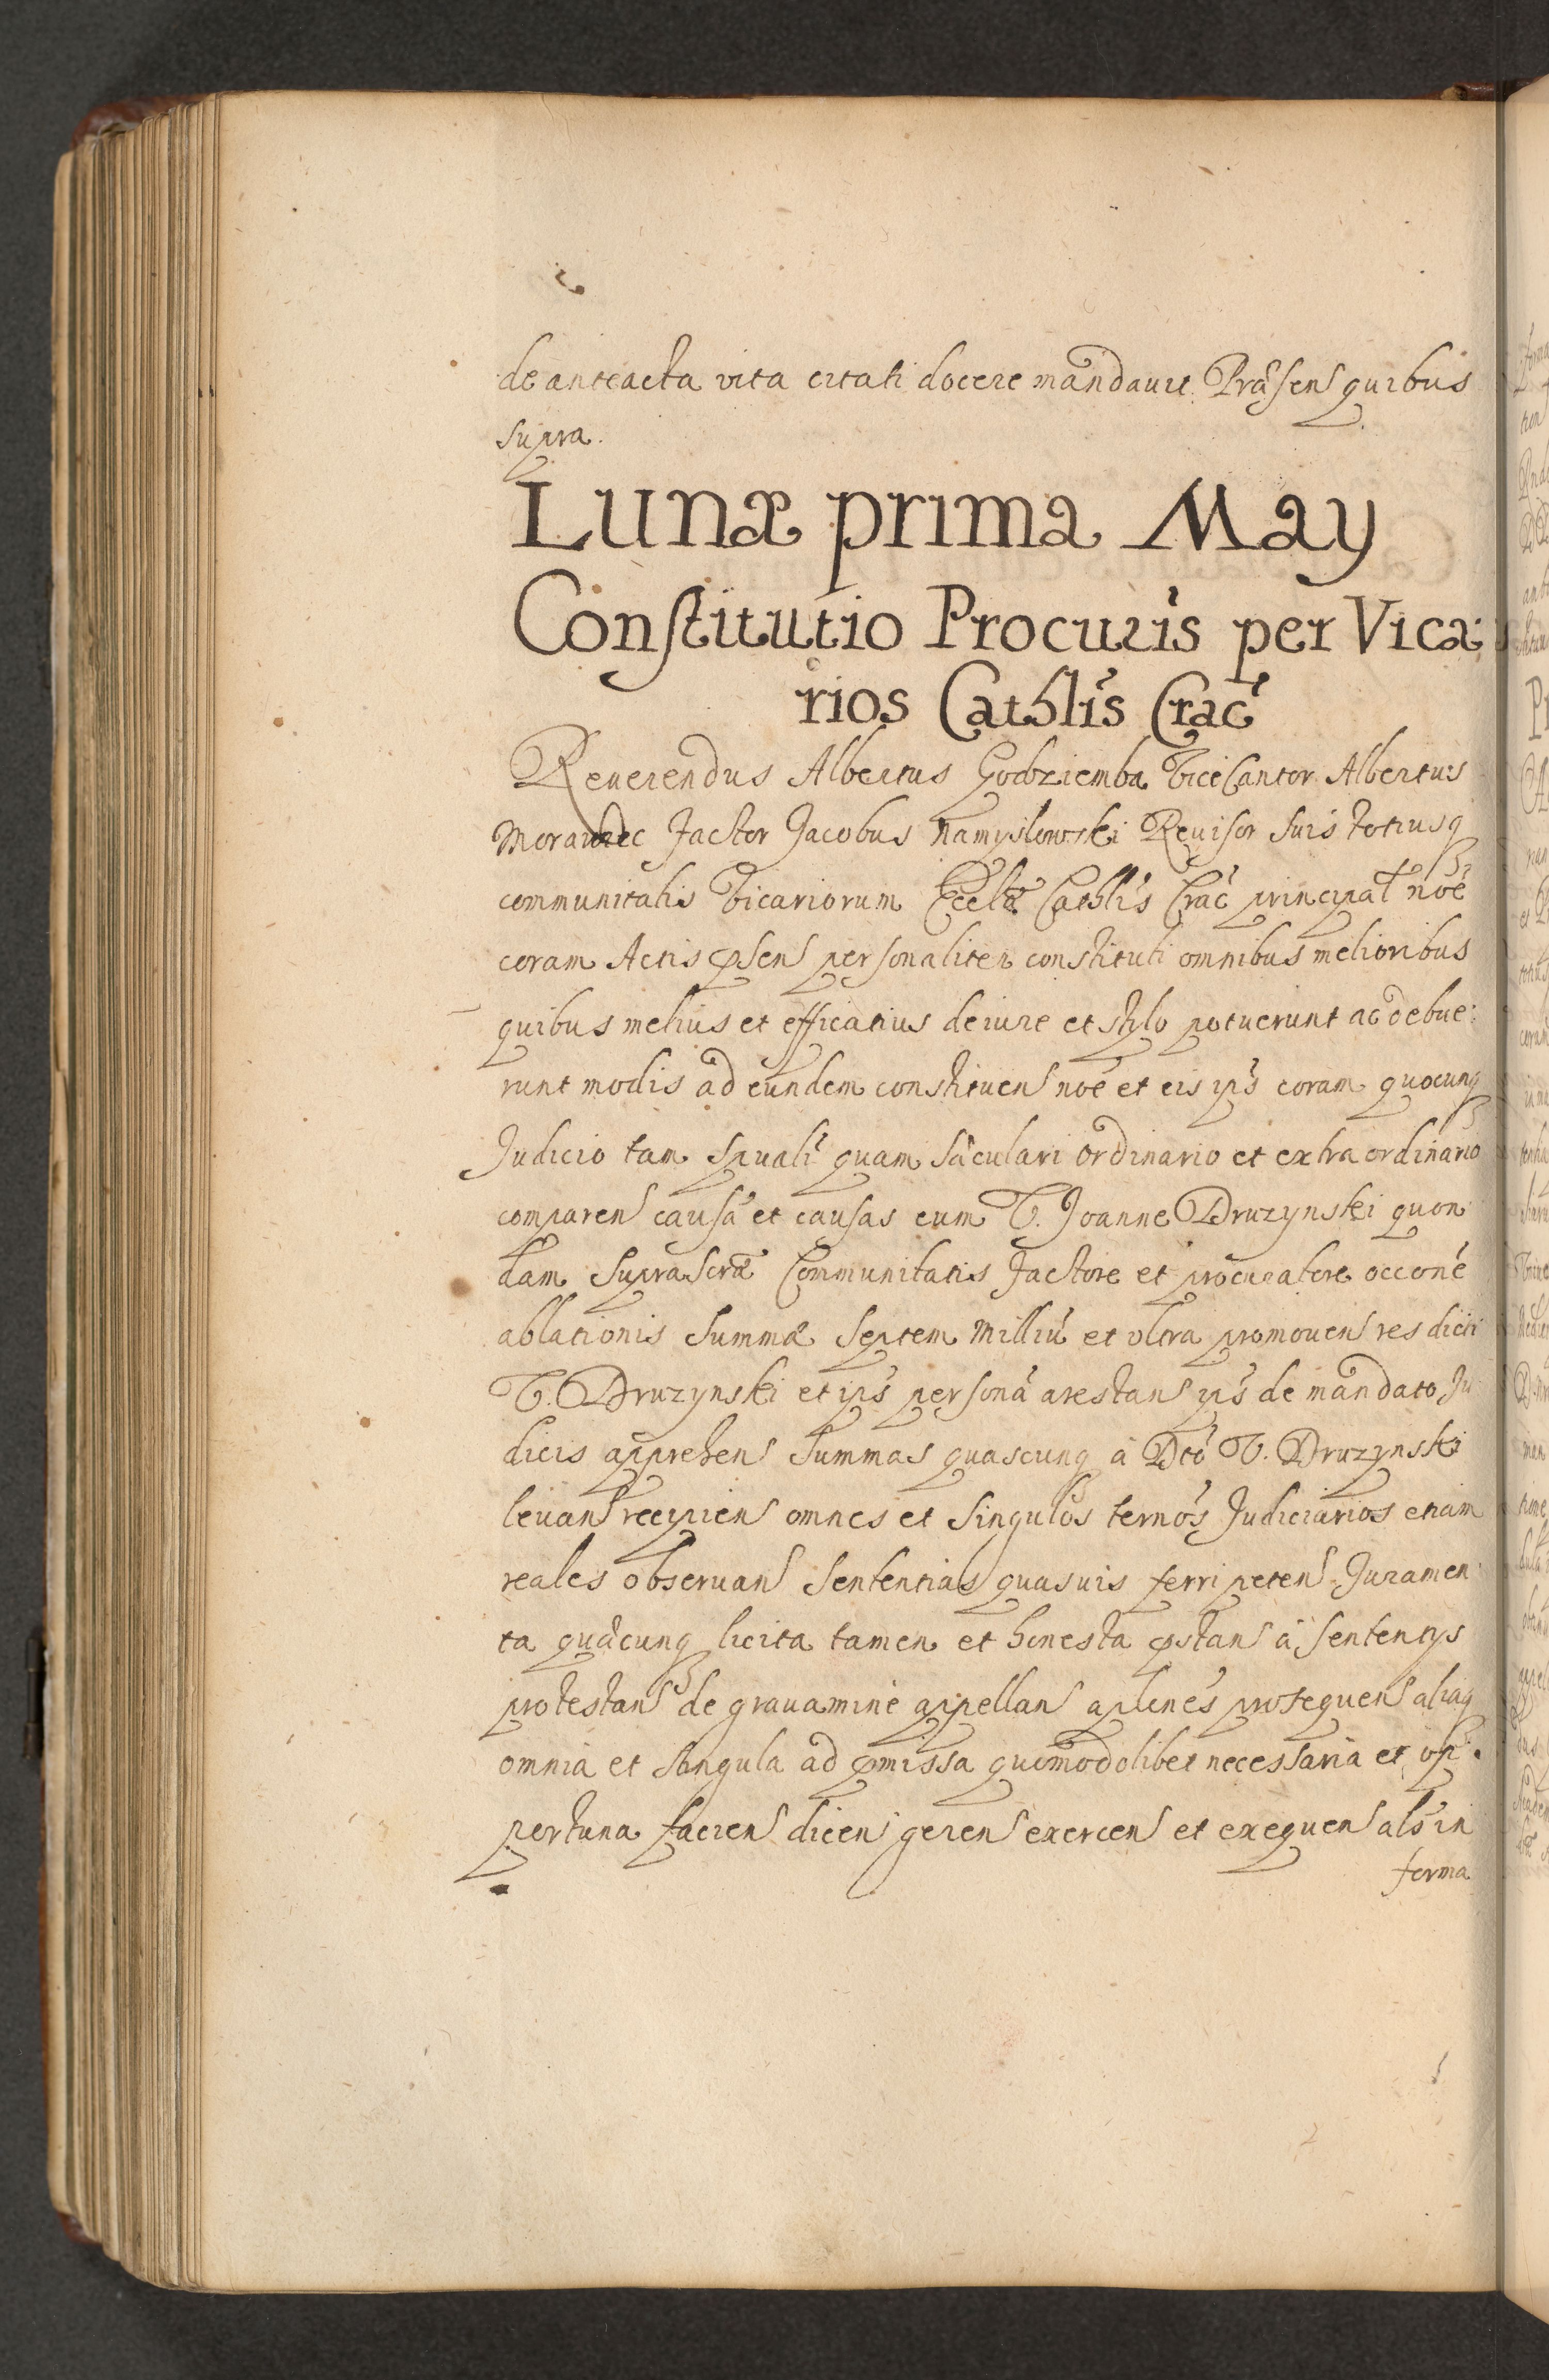 de anteacta vita citati docere mandavit Præsen quibus
supra.
Lunæ prima May
Constitutio Procuris per Vica
rios Cathlis Crac
Reuerendus Albertus Godziemba ViceCantor Albertus
Morawiec Factor Jacobus Namyslowski Reuisor suis totiusq
communitatis Vicariorum Eccłæ Cathlis Crac principal noe
coram Actis psen personaliter constituti omnibus melioribus
quibus melius et efficatius de iure et stylo potuerunt ac debue:
runt modis ad eundem constituen noe et eis ips coram quocunq
Judicio tam spuali quam sæculari ordinario et extraordinario
comparen causa et causas cum V. Joanne Druzynski quon
dam suprascræ Communitatis Factore et procuratore occone
ablationis summæ septem Milliu et vltra promouen res dicti
V. Druzynski et ips persona arestan ips de mandato Ju
dicis apprehen summas quascunq a Dco V. Druzynski
leuan recipien omnes et singulos ternos Judiciarios etiam
reales obseruan sententias quasuis ferri peten Juramen
ta quæcunq licita tamen et honesta pstan a sententys
protestan de grauamine appellan aplnes prosequen aliaq
omnia et singula ad pmissa quomodolibet necessaria et op:
portuna facien dicen geren exercen et exequen als in
forma